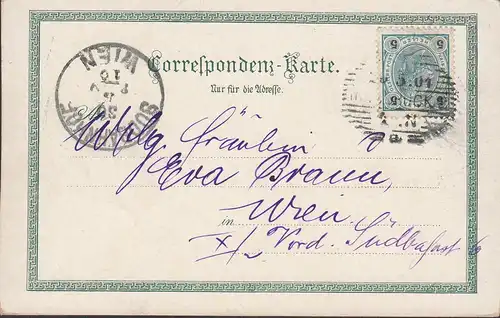 Correspondenz-Karte.
Nur für die Adresse.
WIEN
SÜDBAHNHOF
5 5
5 5
5.01
Wlg. Fräulein
Eva Braun,
in Wien
X/ Vord. Südbahnst 6